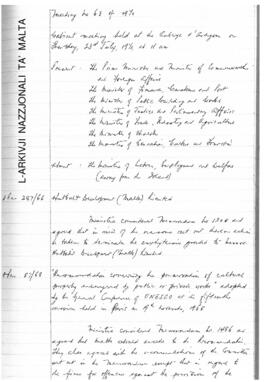 L-ARKIVJI NAZZJONALI TA' MALTA
Meeting No 63 of 1970
Cabinet meeting held at the Auberge d'Aragon on
Thursday, 23rd July, 1970 at 11 am
Present - The Prime Minister and Minister of Commonwealth
and Foreign Affairs
The Minister of Finance, Customs and Port
The Minister of Public Building and Works
The Minister of Justice and Parliamentary Affairs
The Minister of Trade, Industry and Agriculture
The Minister of Health
The Minister of Education, Culture and Tourism
Absent - The Minister of Labour, Employment and Welfare
(away from the Island)
Development (Malta) Limited
Ministers considered Memorandum No and
agreed that in view of the reasons set out therein action
be taken to terminate the emphyteusis granted to
Development (Malta) Limited
"Recommendation concerning the preservation of cultural
property endangered by public or private works" adopted
by the General Conference of UNESCO at its fifteenth
session held in Paris on 19th November 1968
Ministers considered Memorandum No 1486 and
agreed that Malta should accede to the Recommendation.
They also agreed with the recommendations of the Committee
set out in the Memorandum except that in regard to
the fines for offences against the provisions of the